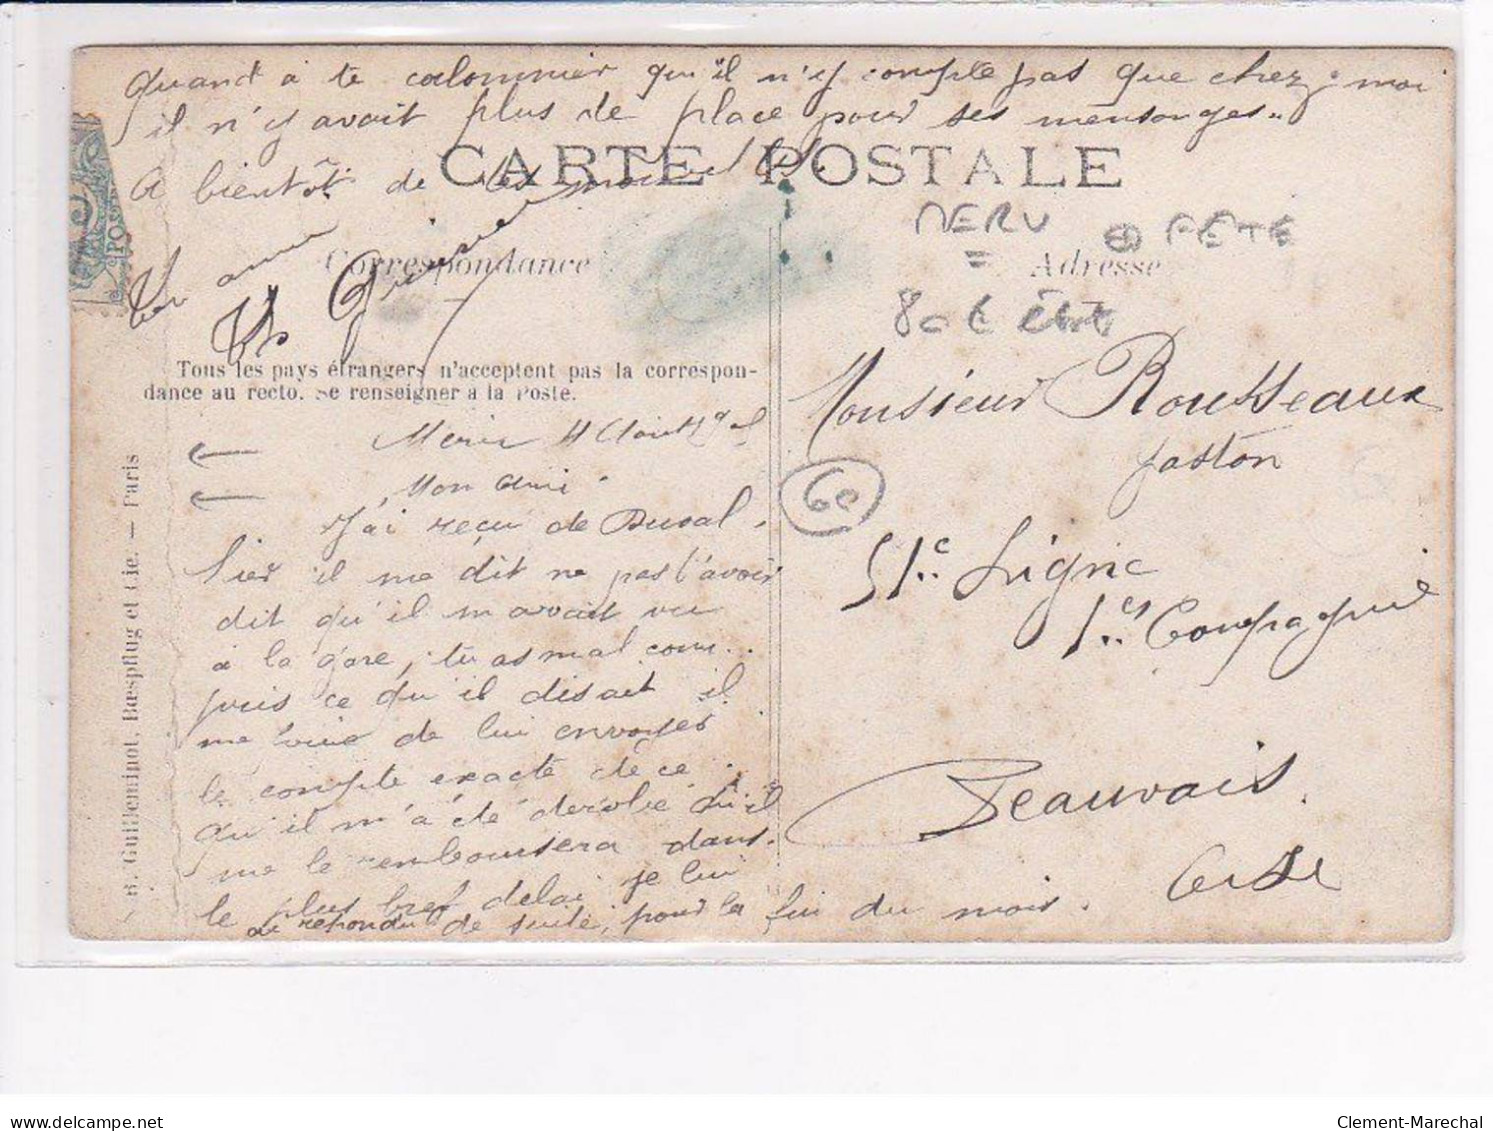 quand à te calomnier qu'il n'y compte pas que chez moi
il n'y avait plus de place pour ses mensonges..
A bientôt de tes nouvelles.
CARTE POSTALE
Ton ami
Correspondance
MERU FETE
Adresse
80 €
Tous les pays étrangers n'acceptent pas la correspon-
dance au recto. Se renseigner à la Poste.
Monsieur Rousseaux
Gaston
60
51e Ligne
1er Compagnie
Beauvais
Oise
Meru 4 Aout
Mon Ami
J'ai reçu de Duval.
hier il me dit ne pas t'avoir
dit qu'il m'avait vu
à la gare, tu as mal com..
pris ce qu'il disait il
me de lui envoyer
le compte exacte de ce
qu'il m'a été derobé qu'il
me le remboursera dans
le plus bref delai je lui
ai repondu de suite, pour la fin du mois.
Guilleminot, Bœspflug et Cie. — Paris
delcampe.net
Clement-Marechal